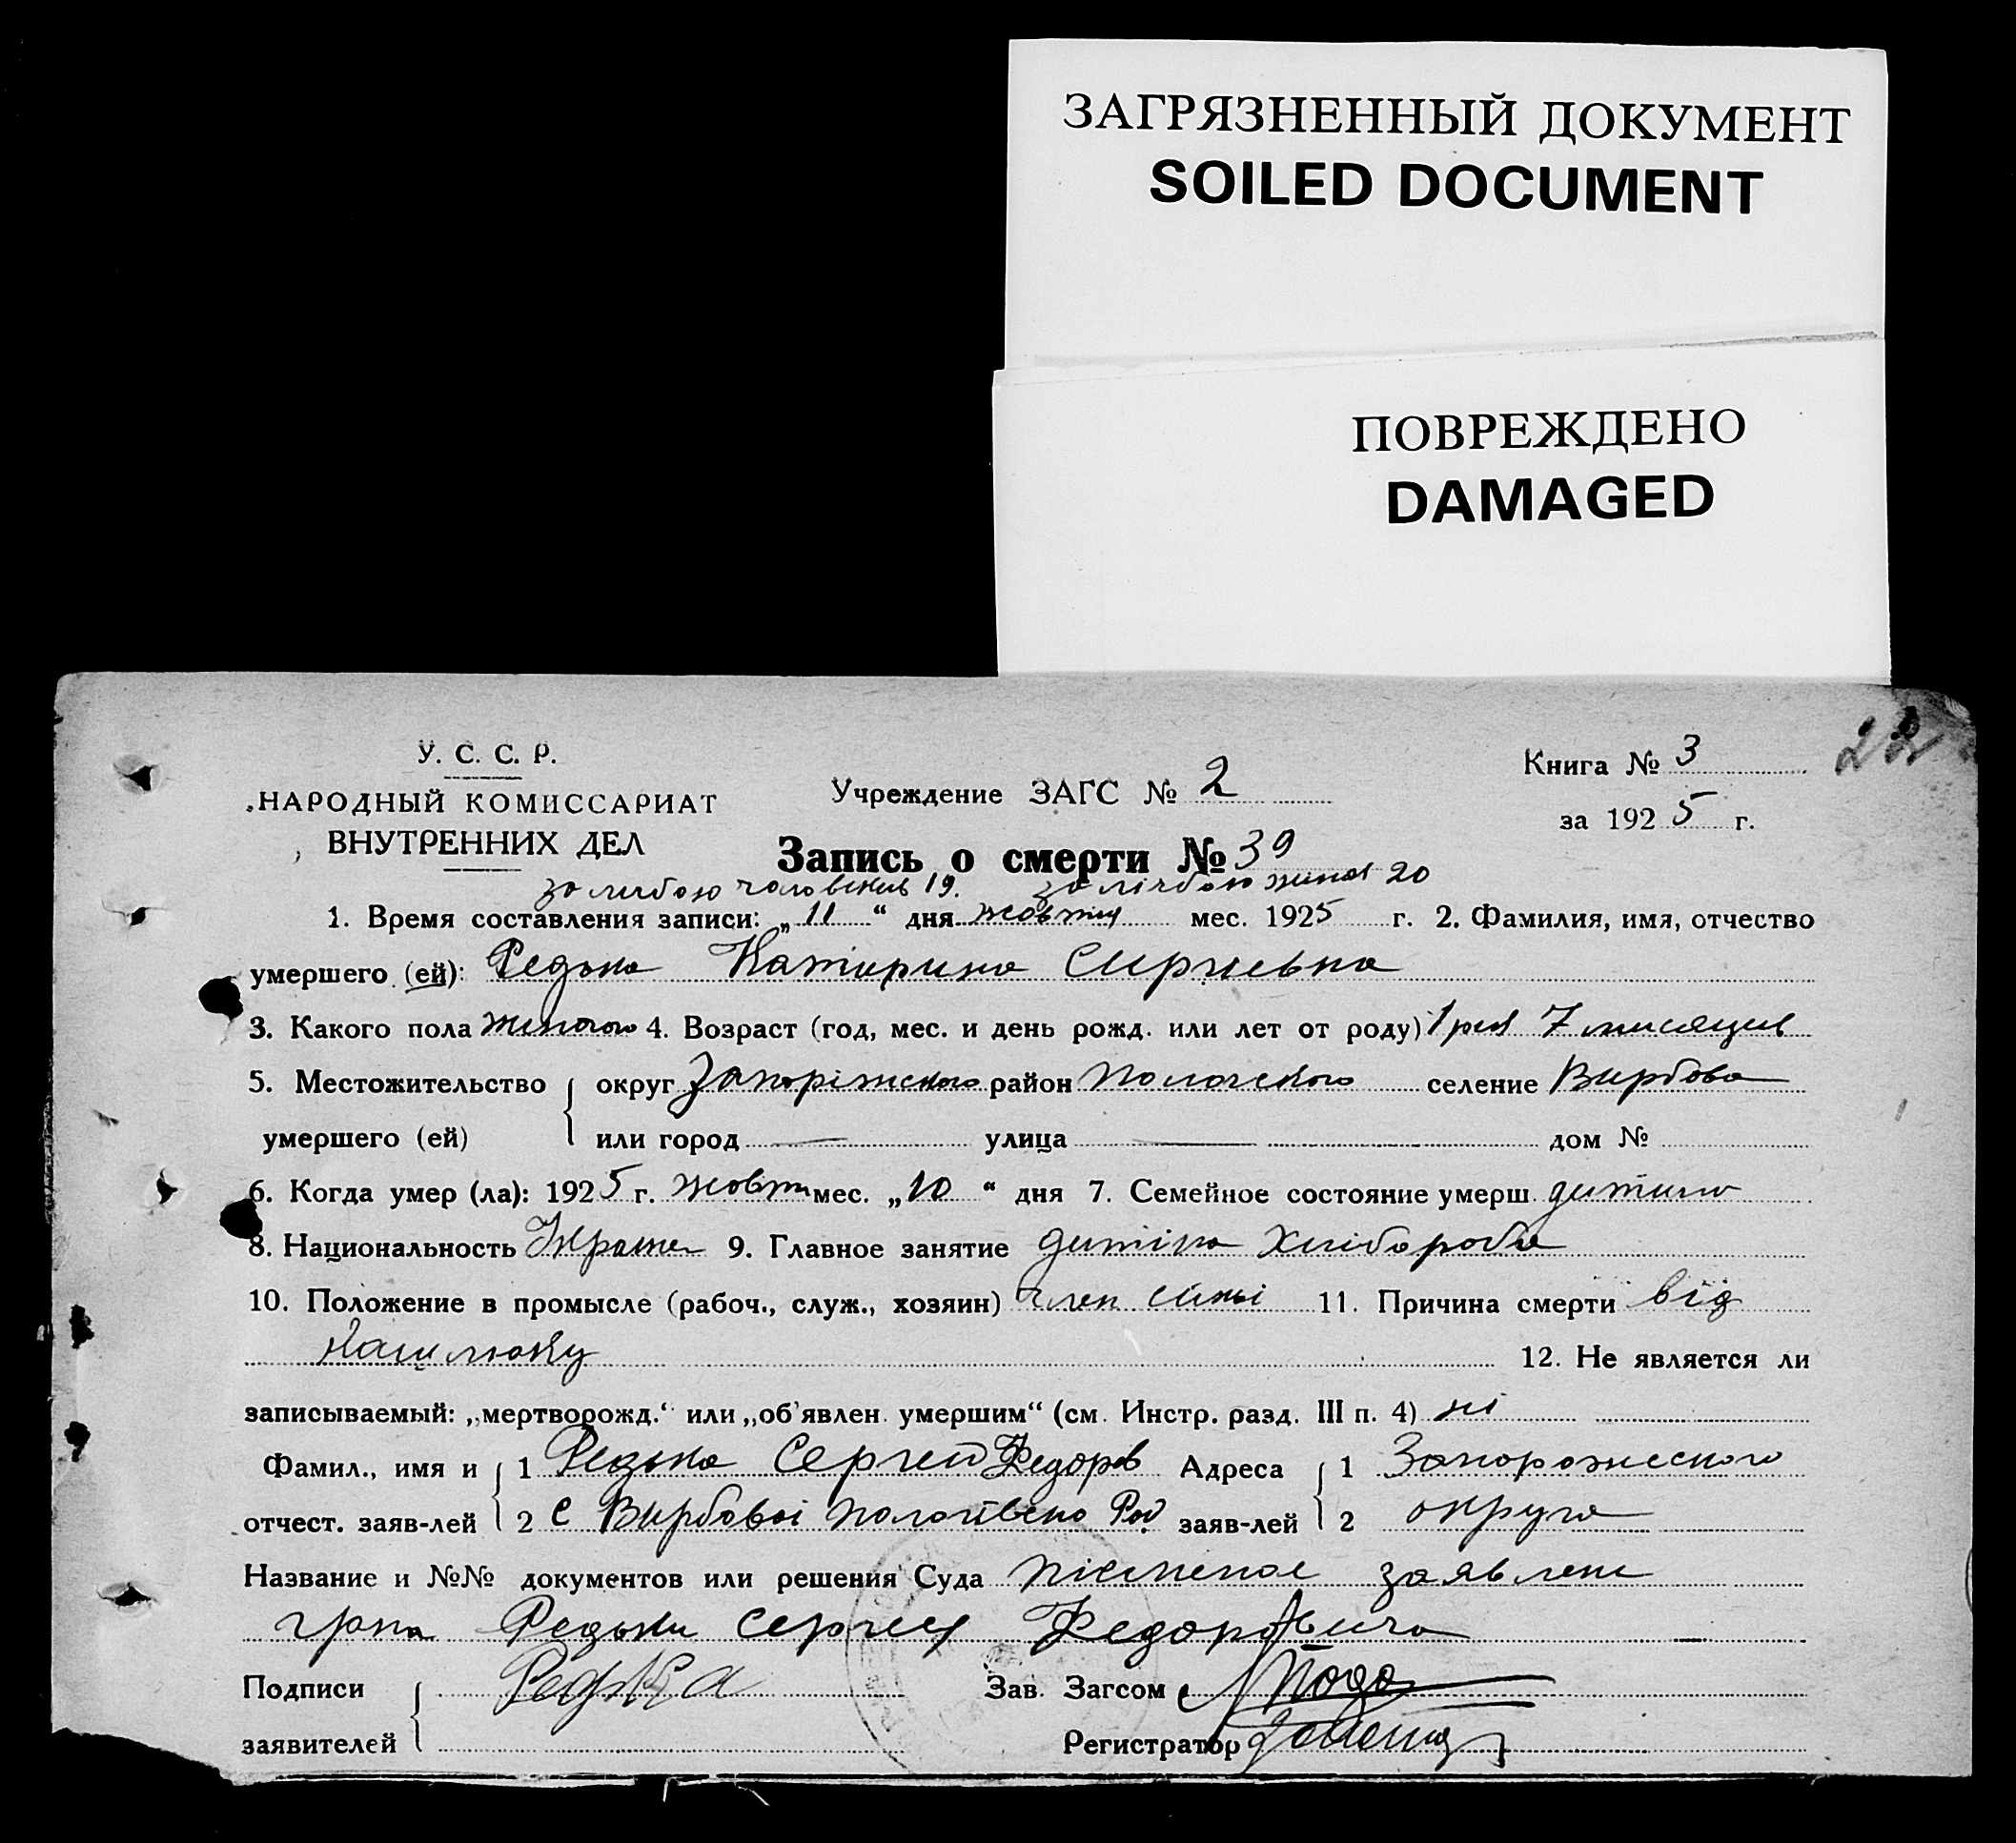 ЗАГРЯЗНЕННЫЙ ДОКУМЕНТ
SOILED DOCUMENT
ПОВРЕЖДЕНО
DAMAGED
У. С. С. Р.
НАРОДНЫЙ КОМИССАРИАТ
ВНУТРЕННИХ ДЕЛ
Учреждение ЗАГС № 2
Книга № 3
за 1925 г.
Запись о смерти № 39
за лічбою 19. за лічбою жінок 20
1. Время составления записи: „11“ дня жовтня мес. 1925 г. 2. Фамилия, имя, отчество
умершего (ей): Редька Катирина Сиргиевна
3. Какого пола жиночого 4. Возраст (год, мес. и день рожд. или лет от роду) 1 рик 7 мисяцив
5. Местожительство округ Запоріжского район Пологского селение Вирбова
умершего (ей) или город — улица — дом №
6. Когда умер (ла): 1925 г. жовтн мес. „10“ дня 7. Семейное состояние умерш. дитина
8. Национальность 9. Главное занятие дитіна Хлібороба
10. Положение в промысле (рабоч., служ., хозяин) член 11. Причина смерти від
Кашлюку
12. Не является ли
записываемый: „мертворожд.“ или „об'явлен. умершим“ (см. Инстр. разд. III п. 4) ні
Фамил., имя и 1 Редька Сергей Федоров Адреса 1 Запорожеского
отчест. заяв-лей 2 с Вирбовоі заяв-лей 2 округа
Название и №№ документов или решения Суда заявлене
гр-на Редьки Сергея Федоровича
Подписи Редька Зав. Загсом
заявителей Регистратор